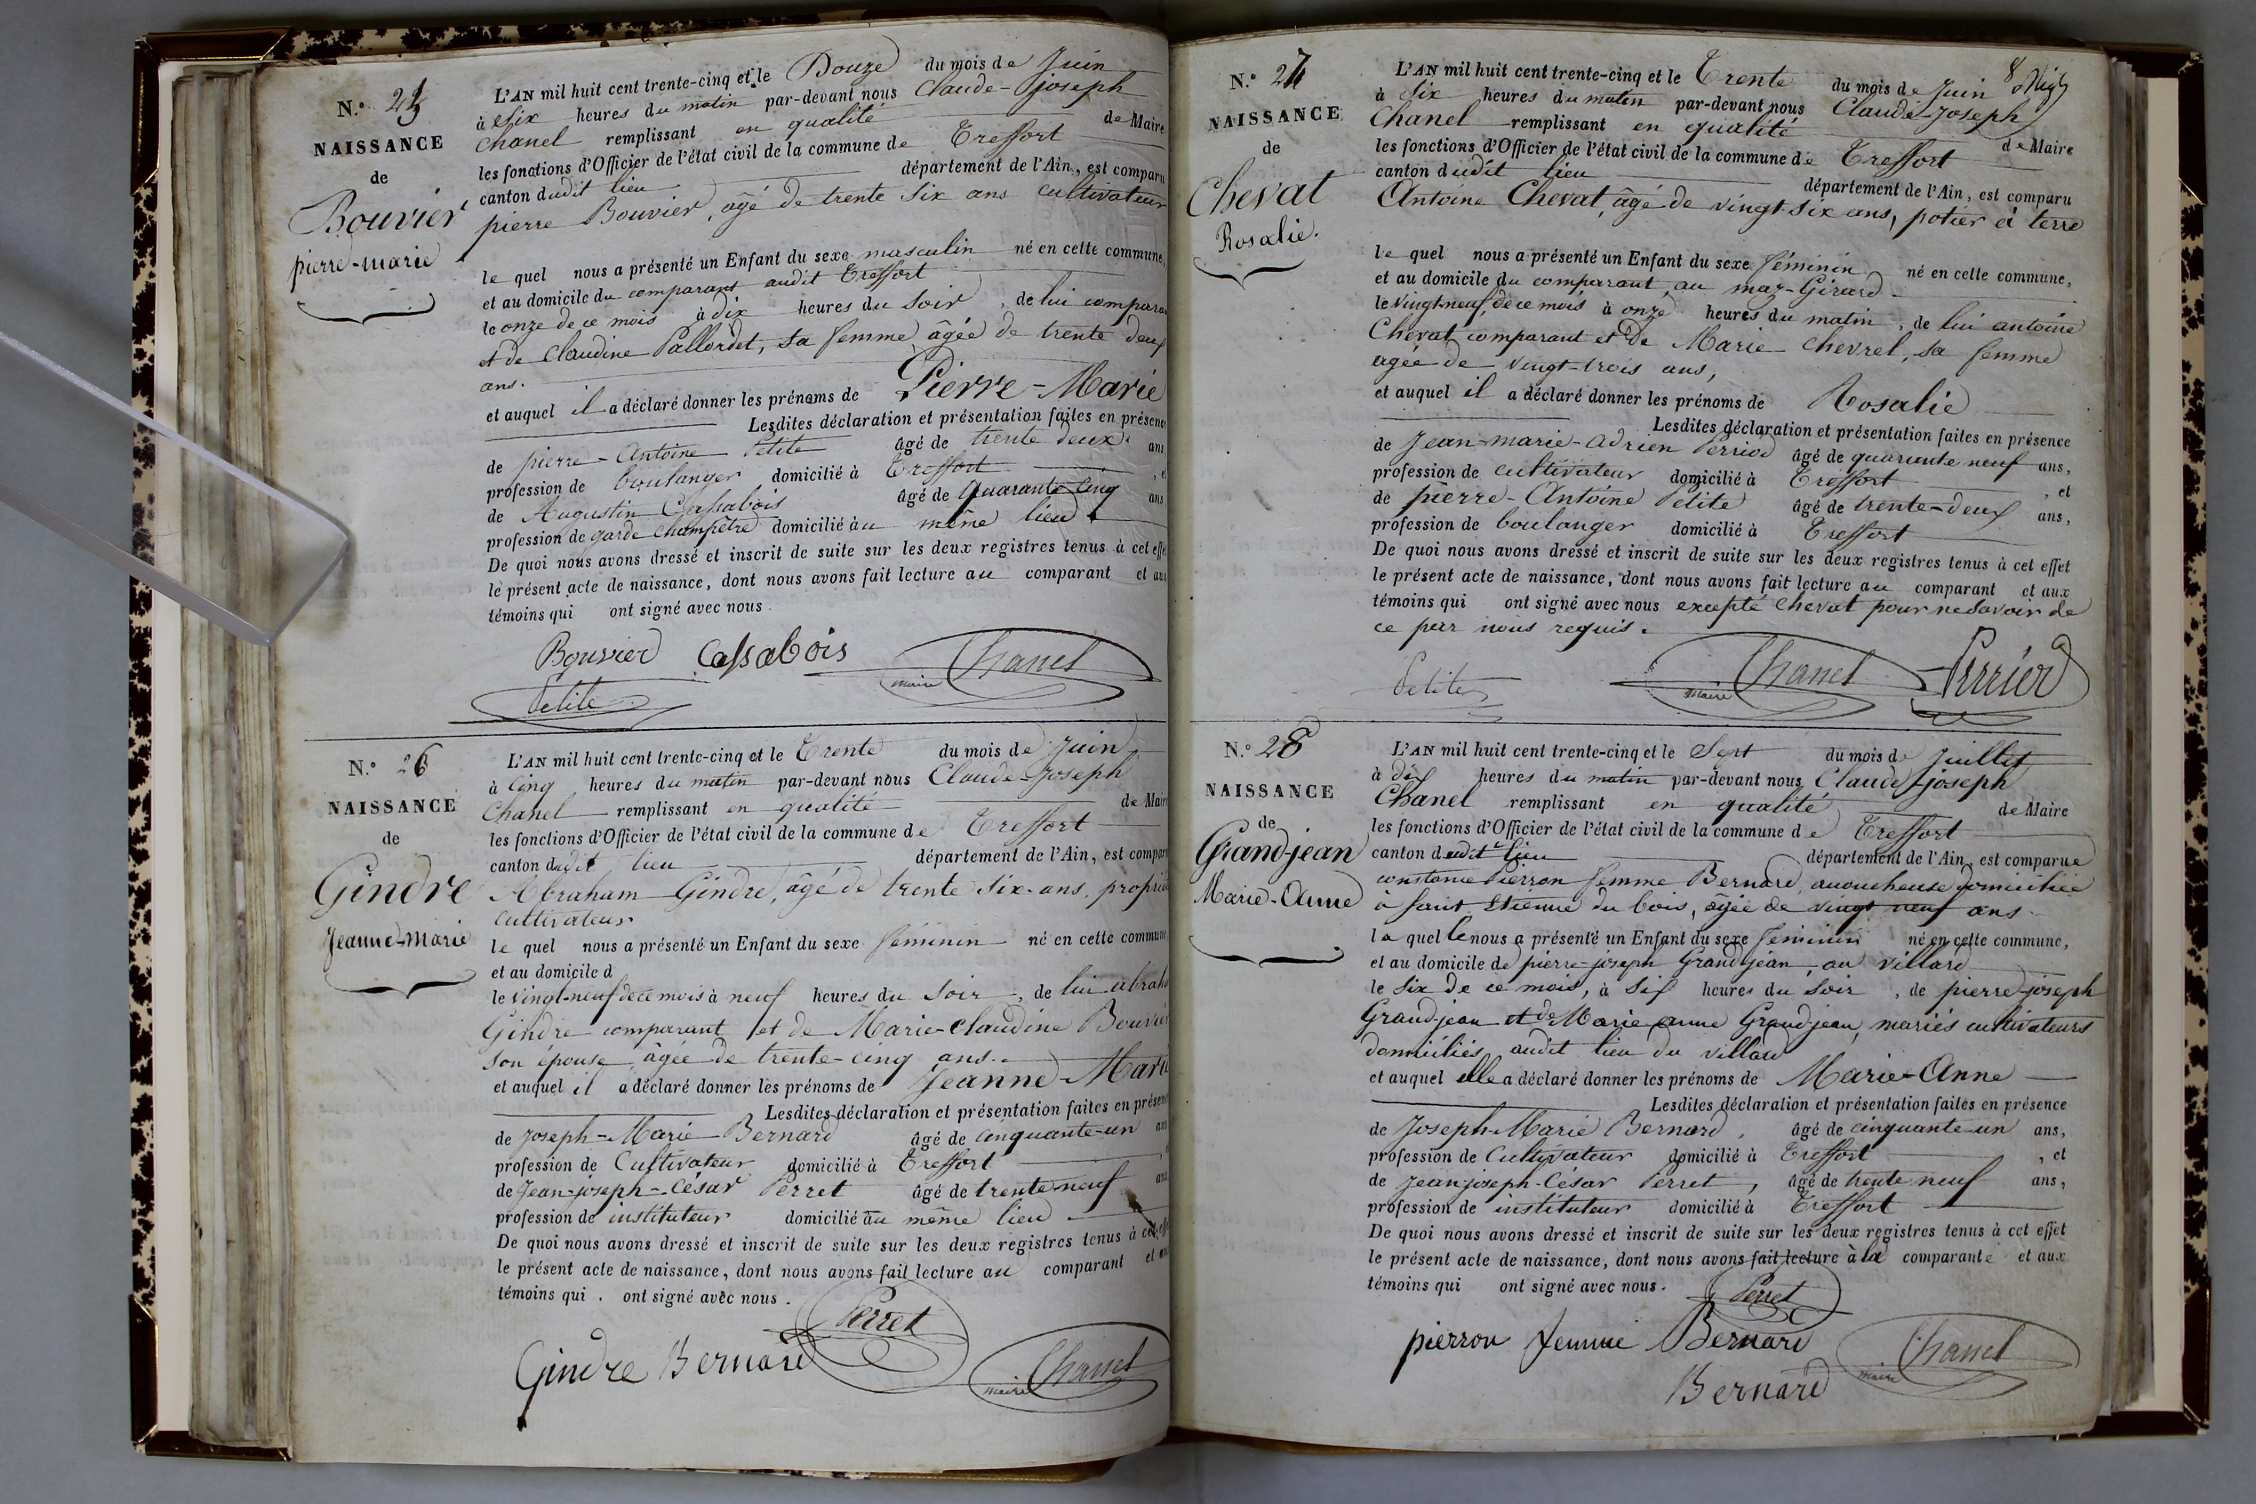 N.° 25
NAISSANCE
de
Bouvier,
pierre-marie
L'AN mil huit cent trente-cinq et le Douze du mois de Juin
à six heures du matin par-devant nous Claude-Joseph
Chanel remplissant en qualité de Maire
les fonctions d'Officier de l'état civil de la commune de Treffort
canton dudit lieu département de l'Ain, est comparu
pierre Bouvier, âgé de trente six ans cultivateur
le quel nous a présenté un Enfant du sexe masculin né en cette commune,
et au domicile du comparant audit Treffort
le onze de ce mois à dix heures du soir, de lui compara
et de Claudine Pallordet, sa femme, âgée de trente deux
ans.
et auquel il a déclaré donner les prénoms de Pierre-Marie
Lesdites déclaration et présentation faites en présence
de pierre-Antoine Petite âgé de trente deux ans
profession de boulanger domicilié à Treffort, et
de Augustin Cassabois âgé de Quarante cinq ans
profession de garde champêtre domicilié au même lieu
De quoi nous avons dressé et inscrit de suite sur les deux registres tenus à cet effet
le présent acte de naissance, dont nous avons fait lecture au comparant et aux
témoins qui ont signé avec nous.
Bouvier Cassabois Chanel
maire
Petite
N.° 26
NAISSANCE
de
Gindre
Jeanne-Marie
L'AN mil huit cent trente-cinq et le Trente du mois de Juin
à cinq heures du matin par-devant nous Claude-Joseph
Chanel remplissant en qualité de Maire
les fonctions d'Officier de l'état civil de la commune de Treffort
canton dudit lieu département de l'Ain, est comparu
Abraham Gindre, âgé de trente six ans, propriét
cultivateur
le quel nous a présenté un Enfant du sexe féminin né en cette commune
et au domicile d
le vingt-neuf de ce mois à neuf heures du soir, de lui abraha
Gindre comparant et de Marie-Claudine Bouvier
son épouse âgée de trente-cinq ans.
et auquel il a déclaré donner les prénoms de Jeanne-Marie
Lesdites déclaration et présentation faites en présence
de Joseph-Marie Bernard âgé de cinquante-un ans
profession de Cultivateur domicilié à Treffort
de Jean-joseph-César Perret âgé de trente neuf ans
profession de instituteur domicilié au même lieu
De quoi nous avons dressé et inscrit de suite sur les deux registres tenus à cet effet
le présent acte de naissance, dont nous avons fait lecture au comparant et aux
témoins qui ont signé avec nous.
Perret
Gindre Bernard Chanel
maire
N.° 27
NAISSANCE
de
Chevat
Rosalie.
L'AN mil huit cent trente-cinq et le Trente du mois de Juin
à Six heures du matin par-devant nous Claude-Joseph
Chanel remplissant en qualité de Maire
les fonctions d'Officier de l'état civil de la commune de Treffort
canton dudit lieu département de l'Ain, est comparu
Antoine Chevat, âgé de vingt six ans, potier à terre
le quel nous a présenté un Enfant du sexe féminin né en cette commune,
et au domicile du comparant, au maz-Girard
le vingt-neuf de ce mois à onze heures du matin, de lui antoine
Chevat comparant et de Marie Chevrel, sa femme
agée de vingt-trois ans,
et auquel il a déclaré donner les prénoms de Rosalie
Lesdites déclaration et présentation faites en présence
de Jean-marie-adrien Perriod âgé de quarante neuf ans,
profession de cultivateur domicilié à Treffort, et
de pierre-Antoine Petite âgé de trente-deux ans,
profession de boulanger domicilié à Treffort
De quoi nous avons dressé et inscrit de suite sur les deux registres tenus à cet effet
le présent acte de naissance, dont nous avons fait lecture au comparant et aux
témoins qui ont signé avec nous excepté Chevat pour ne savoir de
ce par nous requis.
Petite Chanel Perriod
maire
N.° 28
NAISSANCE
de
Grandjean
Marie-Anne
L'AN mil huit cent trente-cinq et le Sept du mois de Juillet
à dix heures du matin par-devant nous Claude-Joseph
Chanel remplissant en qualité de Maire
les fonctions d'Officier de l'état civil de la commune de Treffort
canton dudit lieu département de l'Ain, est comparue
constance Pierron femme Bernard, accoucheuse domiciliée
à saint Etienne du bois, âgée de vingt neuf ans
la quelle nous a présenté un Enfant du sexe féminin né en cette commune,
et au domicile de pierre-joseph Grandjean, au villard
le six de ce mois, à six heures du soir, de pierre-joseph
Grandjean et de Marie anne Grandjean, mariés cultivateurs
domiciliés audit lieu du villard
et auquel elle a déclaré donner les prénoms de Marie-Anne
Lesdites déclaration et présentation faites en présence
de Joseph-Marie Bernard, âgé de cinquante-un ans,
profession de Cultivateur domicilié à Treffort, et
de Jean-joseph-César Perret, âgé de trente neuf ans,
profession de instituteur domicilié à Treffort
De quoi nous avons dressé et inscrit de suite sur les deux registres tenus à cet effet
le présent acte de naissance, dont nous avons fait lecture à la comparante et aux
témoins qui ont signé avec nous.
Perret
pierron femme Bernard Chanel
maire
Bernard